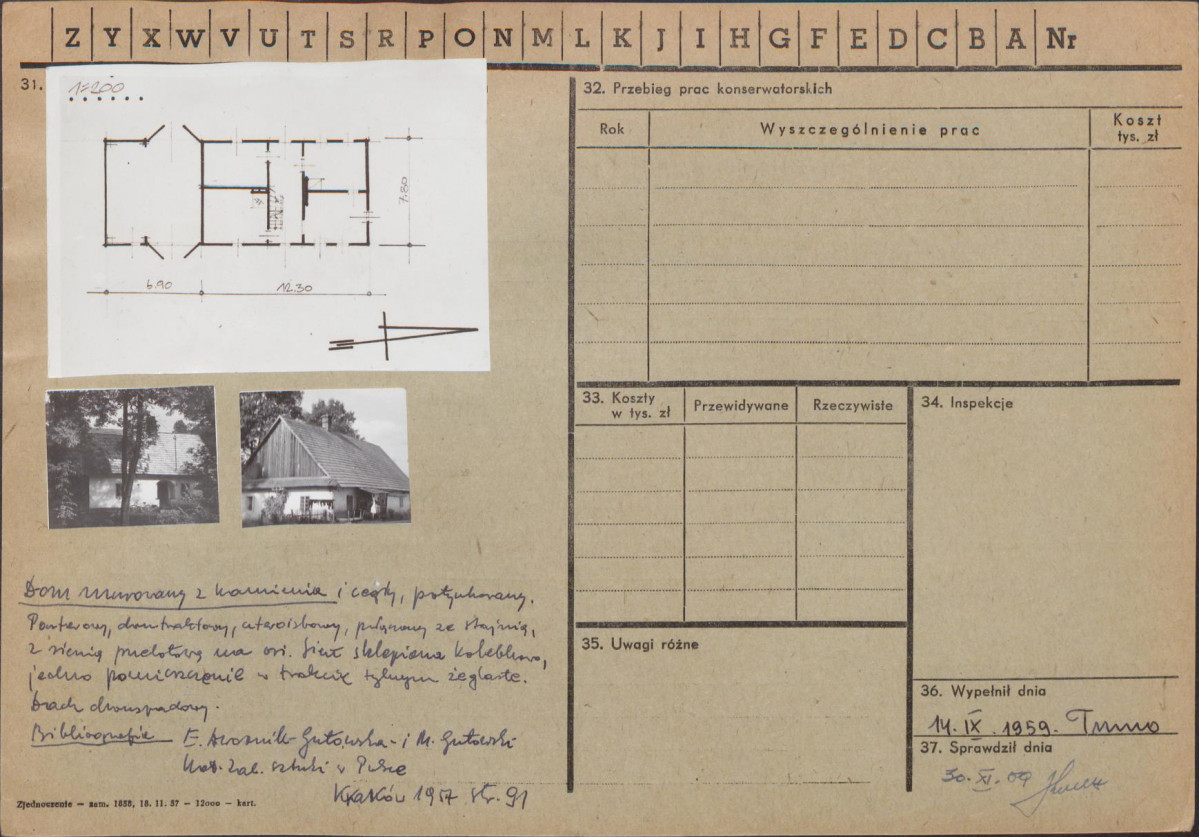 Z Y X W V U T S R P O N M L K J I H G F E D C B A Nr
31.
1=200
7.80
6.90
12.30
Dom murowany z kamienia i cegły, potynkowany.
Parterowy, dwutraktowy, czteroizbowy, połączony ze stajnią,
z sienią przelotową na osi. Sień sklepiona kolebkowo,
jedno pomieszczenie w trakcie tylnym żeglaste.
Dach dwuspadowy.
Bibliografia E. Dwornik-Gutowska i M. Gutowski
Kat. Zab. sztuki w Polsce
Kraków 1957 str. 91
Zjednoczenie — zam. 1658, 18. 11. 57 — 12000 — kart.
32. Przebieg prac konserwatorskich
Rok Wyszczególnienie prac Koszt
tys. zł
33. Koszty
w tys. zł
Przewidywane Rzeczywiste
34. Inspekcje
35. Uwagi różne
36. Wypełnił dnia
14. IX. 1959.
37. Sprawdził dnia
30. XI. 09